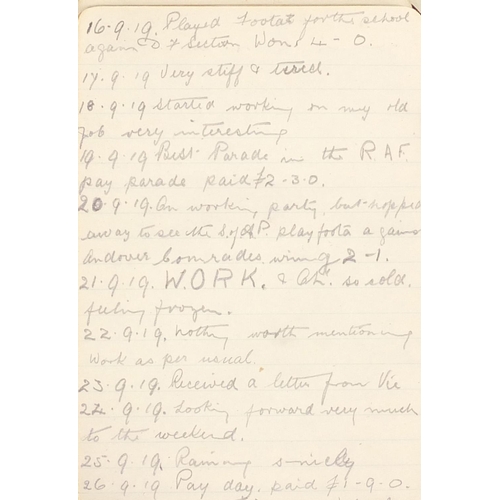 16.9.19. Played Footat for the school
again D & Section Won 4 - 0.
17.9.19 Very stiff & tired.
18.9.19 Started working on my old
job very interesting
19.9.19 Best Parade in the R.A.F.
pay parade paid £2-3-0.
20.9.19. On working party, but hopped
away to see the S. of A.P. play foota a gains
Andover Comrades wining 2-1.
21.9.19. W.O.R.K. & Oh. so cold.
feeling frozen.
22.9.19. Nothing worth mentioning
Work as per usual.
23.9.19. Received a letter from Vie
24.9.19. Looking forward very much
to the weekend.
25.9.19. Raining
26.9.19 Pay day. paid £1-9-0.